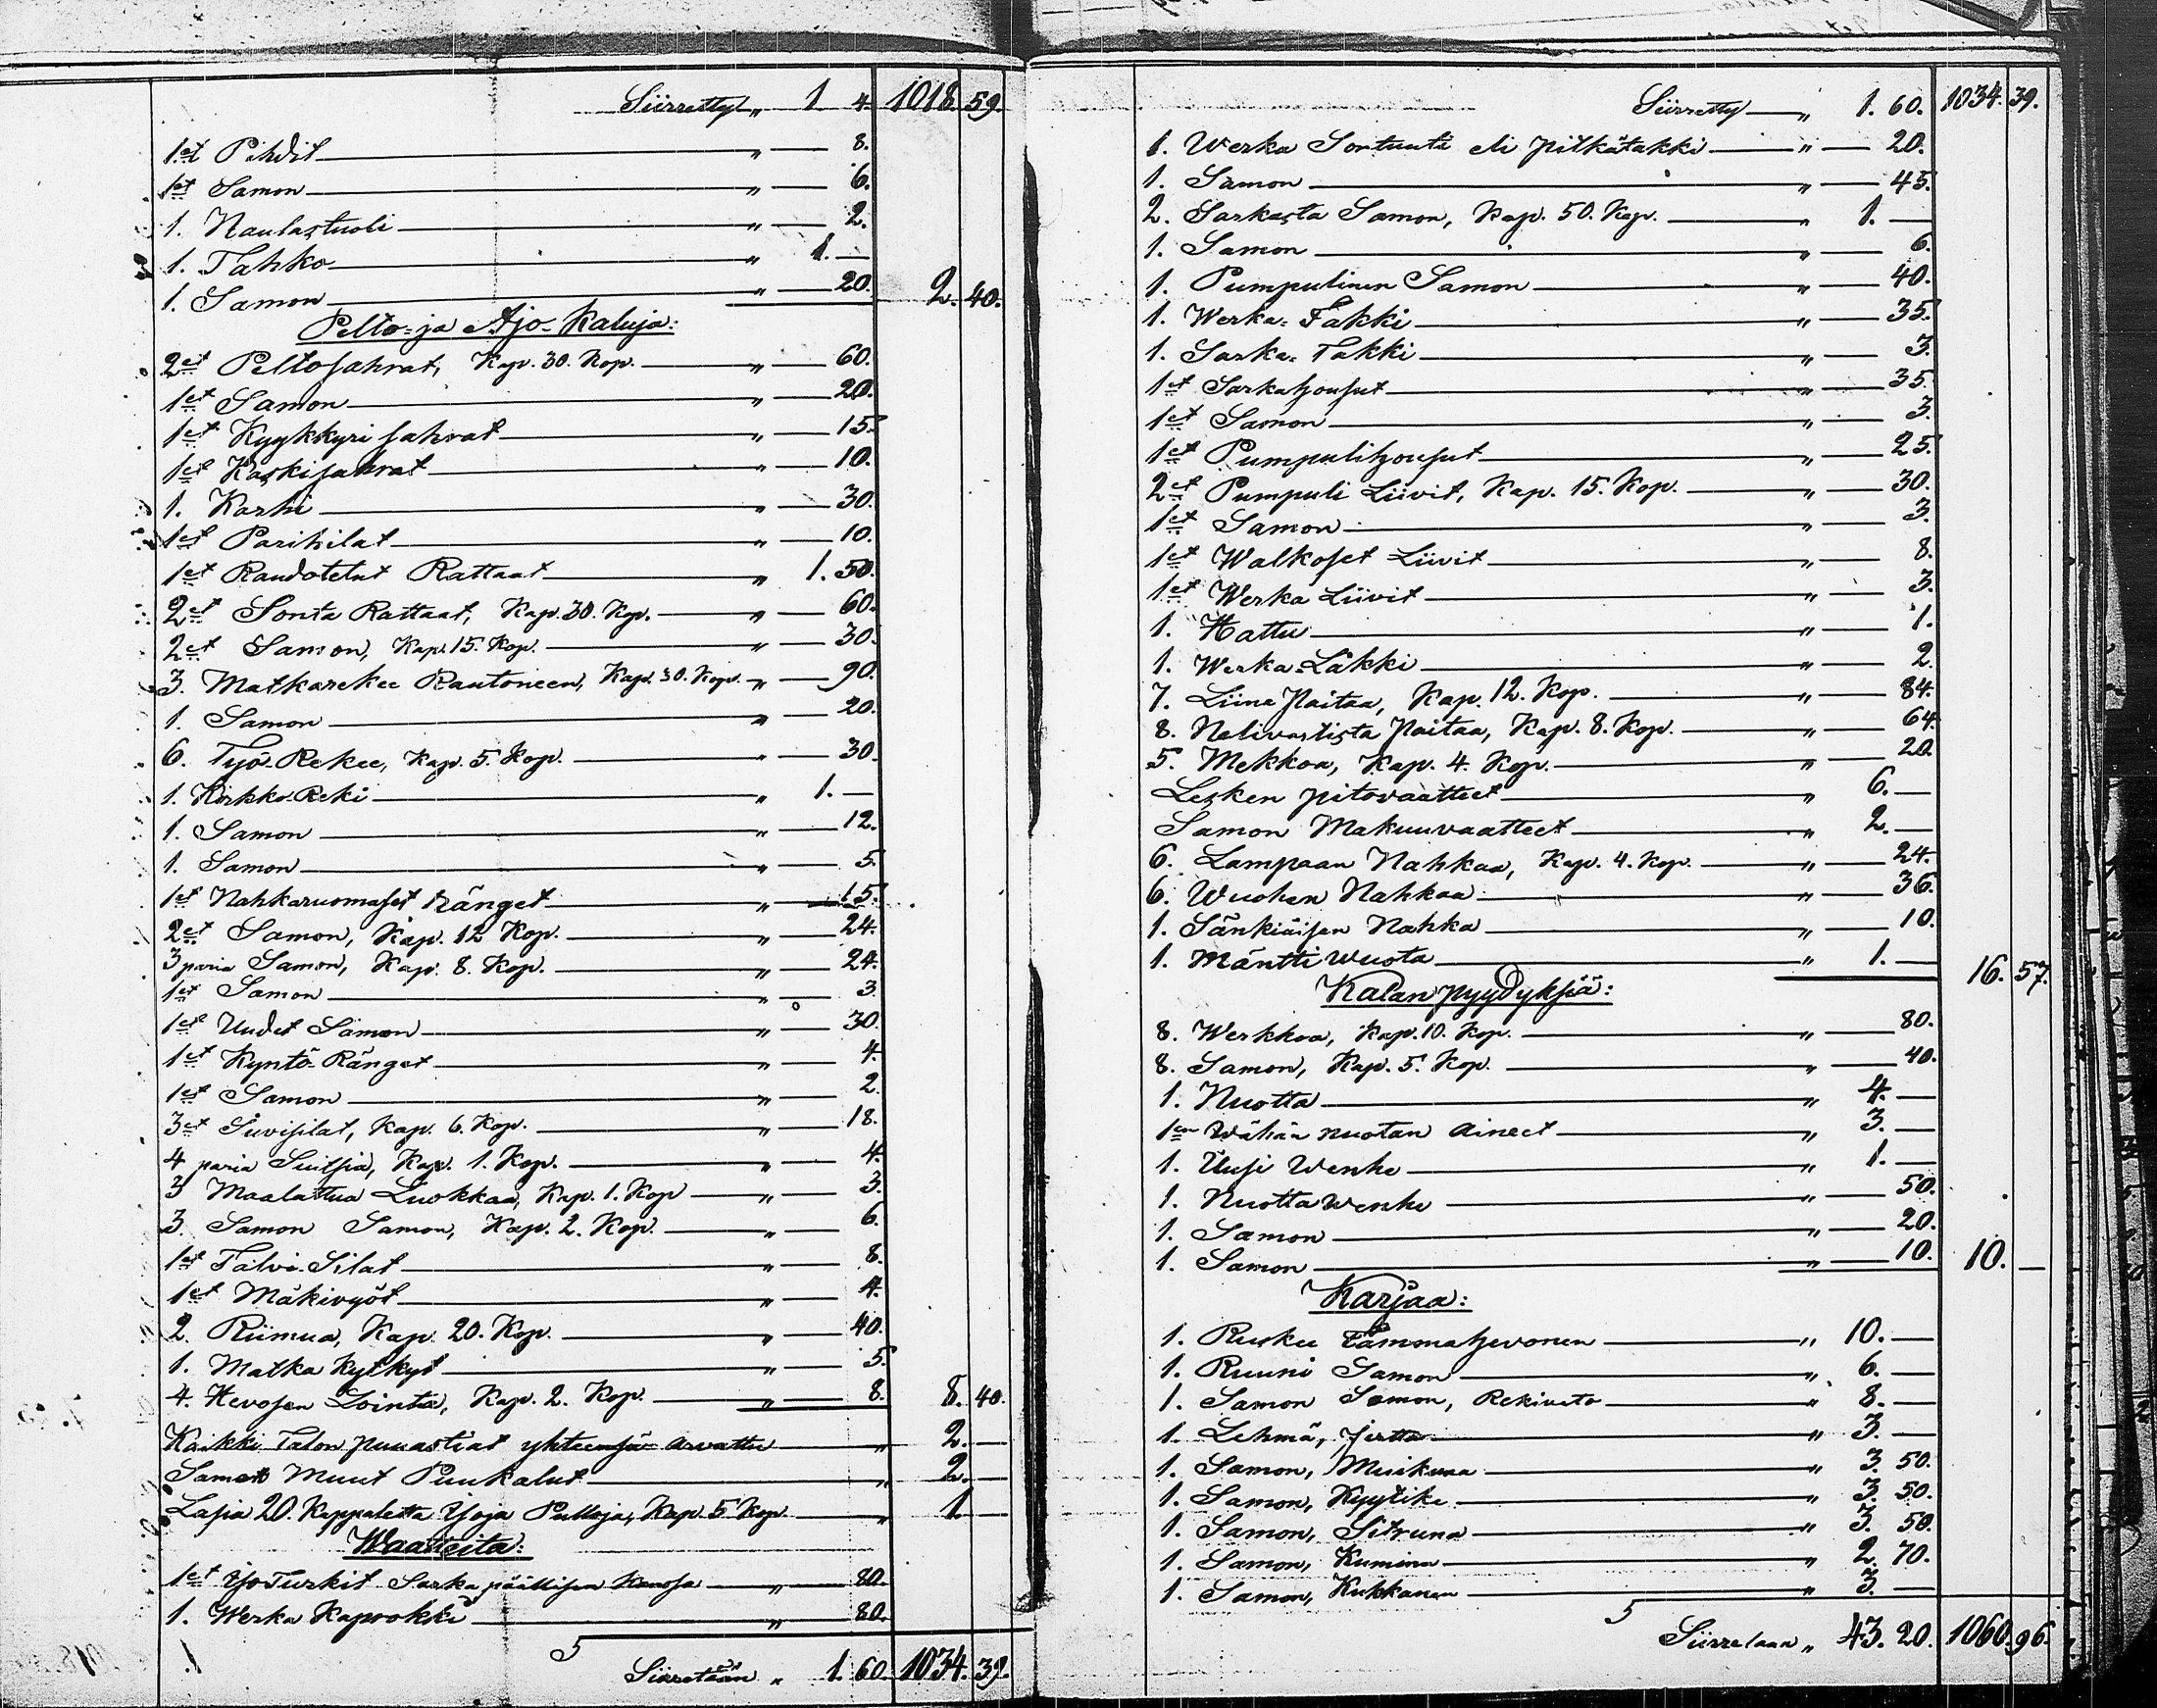 Siirretty „ 1 4. 1018. 59.
1et Pihdit „ 8.
1et Samon „ 6.
1. Naulastuoli „ 2.
1. Tahko „ 1. —
1. Samon „ 20. 2. 40.
Pelto- ja Ajo-Kaluja:
2et Peltosahrat, Kap. 30. Kop. „ 60.
1et Samon „ 20.
1et Kyykkyri sahrat „ 15.
1et Kaskisahrat „ 10.
1. Karhi „ 30.
1et Parihilat „ 10.
1et Raudotetut Rattaat „ 1. 50.
2et Sonta Rattaat, Kap. 30. Kop. „ 60.
2et Samon, Kap. 15. Kop. „ 30.
3. Matkarekee Rautoneen, Kap. 30. Kop. „ 90.
1. Samon „ 20.
6. Työ-Rekee, Kap. 5. Kop. „ 30.
1. Kirkko-Reki „ 1. —
1. Samon „ 12.
1. Samon „ 5.
1et Nahkaruomaset Ränget „ 15.
2et Samon, Kap. 12 Kop. „ 24.
3 paria Samon, Kap. 8. Kop. „ 24.
1et Samon „ 3.
1et Uudet Samon „ 30.
1et Kyntö-Ränget „ 4.
1et Samon „ 2.
3et Suvisilat, Kap. 6. Kop. „ 18.
4 paria Suitsia, Kap. 1. Kop. „ 4.
3 Maalattua Luokkaa, Kap. 1. Kop „ 3.
3. Samon Samon, Kap. 2. Kop. „ 6.
1et Talvi-Silat „ 8.
1et Mäkivyöt „ 4.
2. Riimua, Kap. 20. Kop. „ 40.
1. Matka kytkyt „ 5.
4. Hevosen Lointa, Kap. 2. Kop. „ 8. 8. 40.
Kaikki Talon puuastiat yhteensä arvattu „ 2. —
Samoto Muut Puukalut „ 2. —
Lasia 20. Kappaletta Isoja Pulloja, Kap. 5 Kop. „ 1. —
Waatteita:
1et Iso Turkit Sarka päällisen Kanssa „ 80.
1. Werka Kaprokki „ 80.
5
Siirretään „ 1. 60. 1034. 39.
Siirretty „ 1. 60. 1034. 39.
1. Werka Sortuuti eli pitkätakki „ 20.
1. Samon „ 45.
2. Sarkasta Samon, Kap. 50. Kop. „ 1. —
1. Samon „ 6.
1. Pumpulinen Samon „ 40.
1. Werka-Takki „ 35.
1. Sarka-Takki „ 3.
1et Sarkahousut „ 35.
1et Samon „ 3.
1et Pumpulihousut „ 25.
2et Pumpuli Liivit, Kap. 15. Kop. „ 30.
1et Samon „ 3.
1et Walkoset Liivit „ 8.
1et Werka Liivit „ 3.
1. Hattu „ 1.
1. Werka-Lakki „ 2.
7. Liina Paitaa, Kap. 12. Kop. „ 84.
8. Nelivartista Paitaa, Kap. 8. Kop. „ 64.
5. Mekkoa, Kap. 4. Kop. „ 20.
Lesken pitovaatteet „ 6. —
Samon Makuuvaatteet „ 2. —
6. Lampaan Nahkaa, Kap. 4. Kop. „ 24.
6. Wuohen Nahkaa „ 36.
1. Sänkiäisen Nahka „ 10.
1. Mäntti Wuota „ 1. — 16. 57.
Kalan pyydyksiä:
8. Werkkoa, Kap. 10. Kop. „ 80.
8. Samon, Kap. 5. Kop. „ 40.
1. Nuotta „ 4. —
1en Wähän nuotan aineet „ 3. —
1. Uusi Wenhe „ 1. —
1. Nuotta Wenhe „ 50.
1. Samon „ 20.
1. Samon „ 10. 10. —
Karjaa:
1. Ruskee Tammahevonen „ 10. —
1. Ruuni Samon „ 6. —
1. Samon Samon, Rekiveto „ 8. —
1. Lehmä, Jertta „ 3. —
1. Samon, Muikuna „ 3. 50.
1. Samon, Kyytike „ 3. 50.
1. Samon, Sitruna „ 3. 50.
1. Samon, Kumina „ 2. 70.
1. Samon, Kukkanen „ 3. —
5
Siirretaan „ 43. 20. 1060. 96.